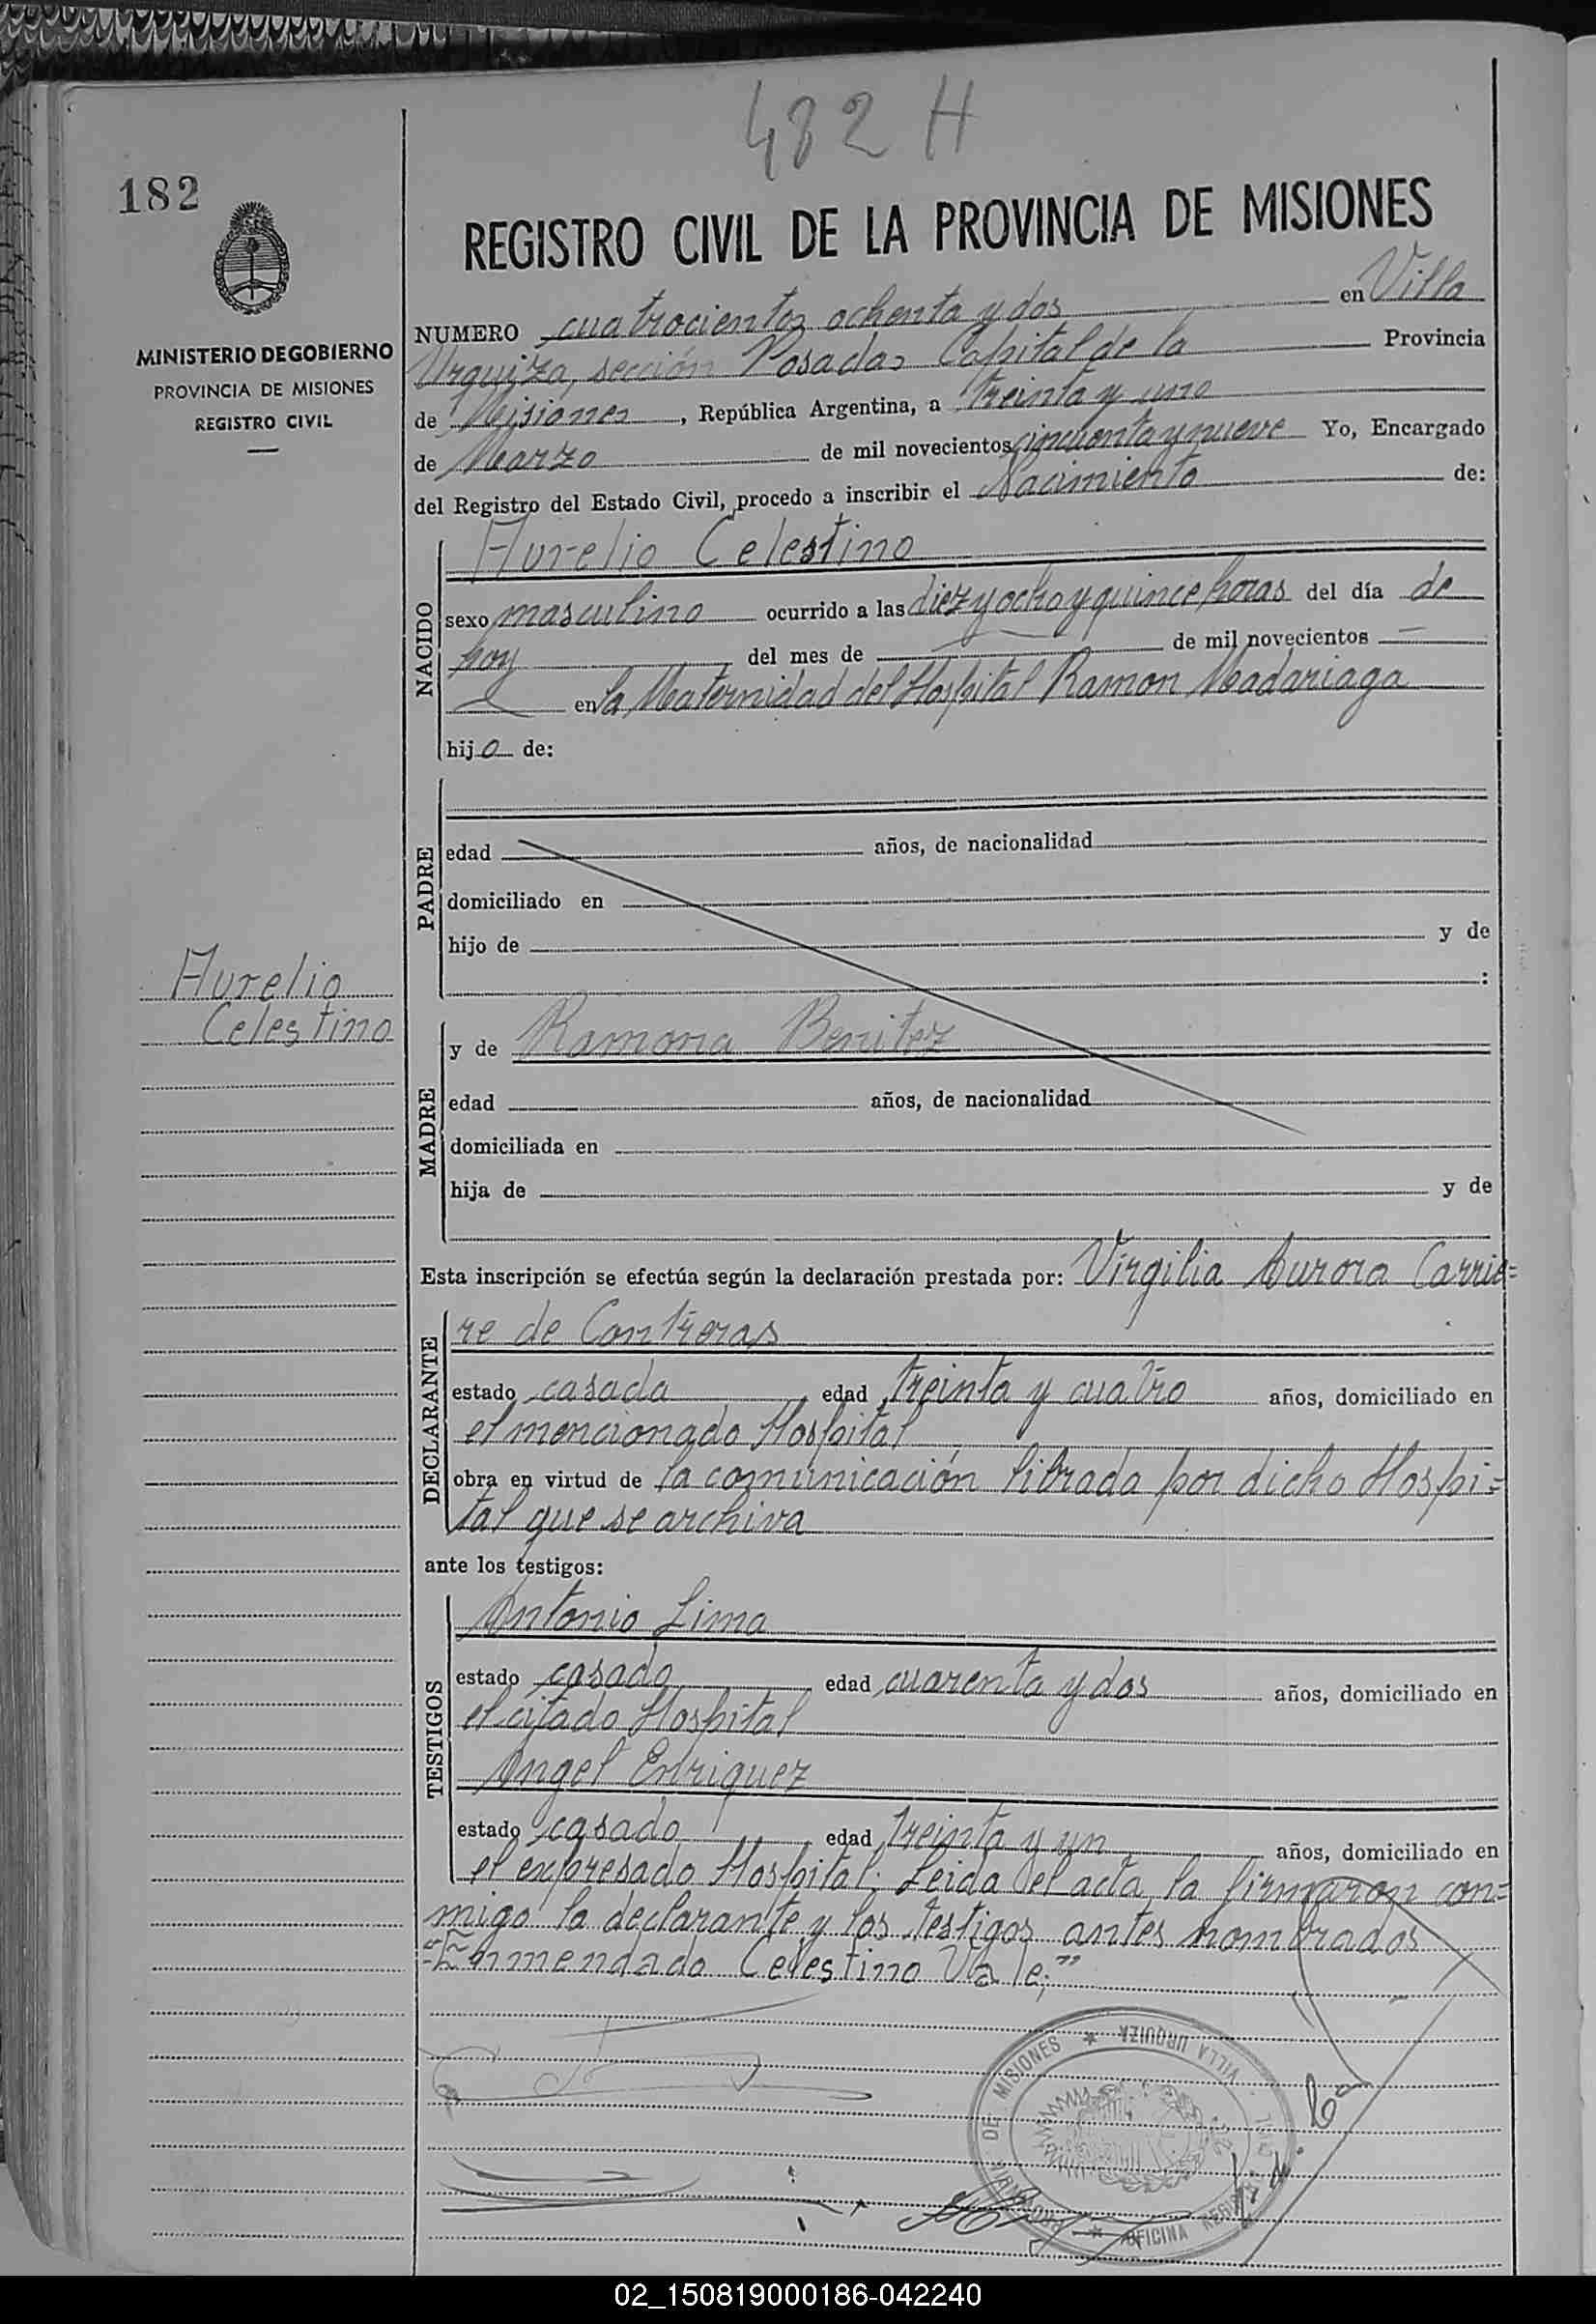 482 H
182
REGISTRO CIVIL DE LA PROVINCIA DE MISIONES
MINISTERIO DE GOBIERNO
PROVINCIA DE MISIONES
REGISTRO CIVIL
NUMERO cuatrocientos ochenta y dos en Villa
Urquiza, sección Posadas Capital de la Provincia
de Misiones, República Argentina, a treinta y uno
de Marzo de mil novecientos cincuenta y nueve Yo, Encargado
del Registro del Estado Civil, procedo a inscribir el Nacimiento de:
NACIDO
Aurelio Celestino
sexo masculino ocurrido a las diez y ocho y quince horas del día de
hoy del mes de — de mil novecientos —
— en la Maternidad del Hospital Ramon Madariaga
hijo de:
PADRE
edad años, de nacionalidad
domiciliado en
hijo de y de
:
Aurelio
Celestino
MADRE
y de Ramona Benitez
edad años, de nacionalidad
domiciliada en
hija de y de
Esta inscripción se efectúa según la declaración prestada por: Virgilia Aurora Carrie=
DECLARANTE
re de Contreras
estado casada edad treinta y cuatro años, domiciliado en
el mencionado Hospital
obra en virtud de la comunicación librada por dicho Hospi=
tal que se archiva
ante los testigos:
TESTIGOS
Antonio Lima
estado casado edad cuarenta y dos años, domiciliado en
el citado Hospital
Angel Enriquez
estado casado edad treinta y un años, domiciliado en
el expresado Hospital. Leida el acta, la firmaron con=
migo la declarante y los testigos antes nombrados
"Enmendado Celestino Vale."
PROVINCIA DE MISIONES * VILLA URQUIZA
* OFICINA REGISTRO CIVIL
02_150819000186-042240